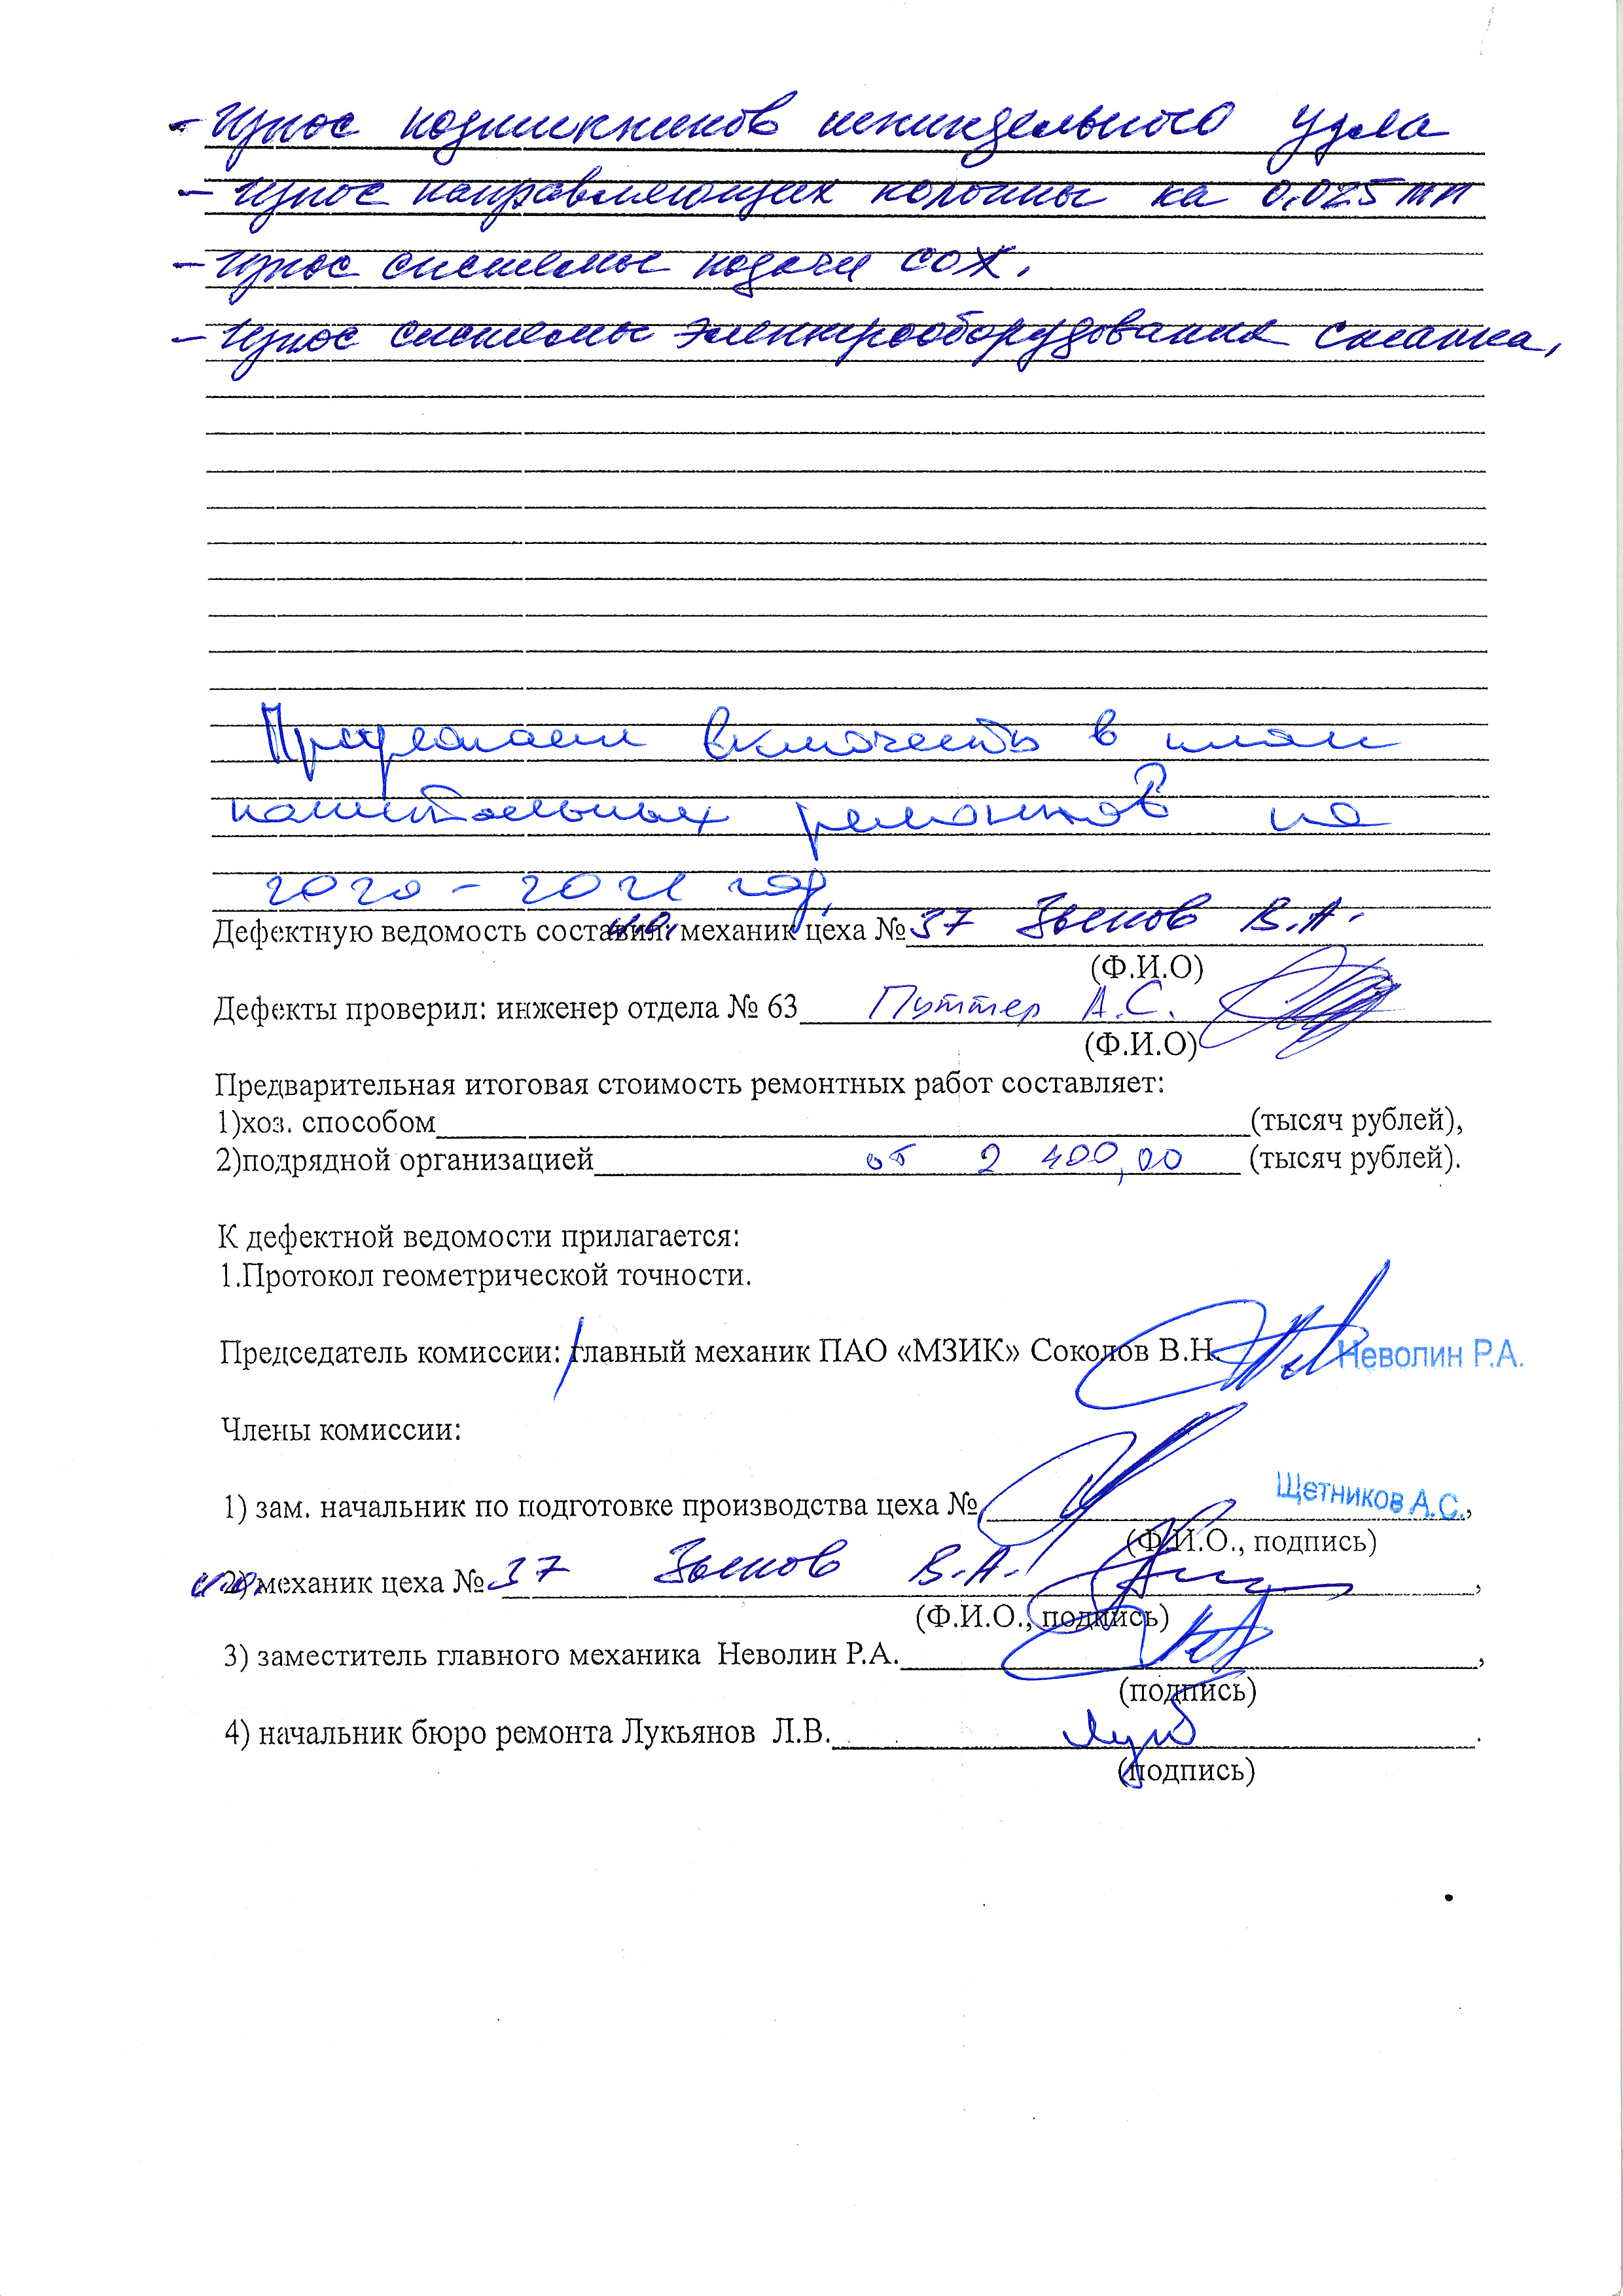 - Износ подшипников шпиндельного узла
- Износ направляющих колонны на 0,025 мм
- Износ системы подачи СОЖ.
- Износ системы электрооборудования станка,
Предлагаем включить в план
капитальных ремонтов на
2020 - 2021 год.
Дефектную ведомость составил: и.о. механик цеха № 37 Зыков В.А.
(Ф.И.О)
Дефекты проверил: инженер отдела № 63 Путтер А.С.
(Ф.И.О)
Предварительная итоговая стоимость ремонтных работ составляет:
1)хоз. способом (тысяч рублей),
2)подрядной организацией от 2 400,00 (тысяч рублей).
К дефектной ведомости прилагается:
1.Протокол геометрической точности.
Председатель комиссии: главный механик ПАО «МЗИК» Соколов В.Н. Неволин Р.А.
Члены комиссии:
1) зам. начальник по подготовке производства цеха № Щетников А.С.,
(Ф.И.О., подпись)
и.о. 2) механик цеха № 37 Зыков В.А. ,
(Ф.И.О., подпись)
3) заместитель главного механика Неволин Р.А. ,
(подпись)
4) начальник бюро ремонта Лукьянов Л.В. .
(подпись)